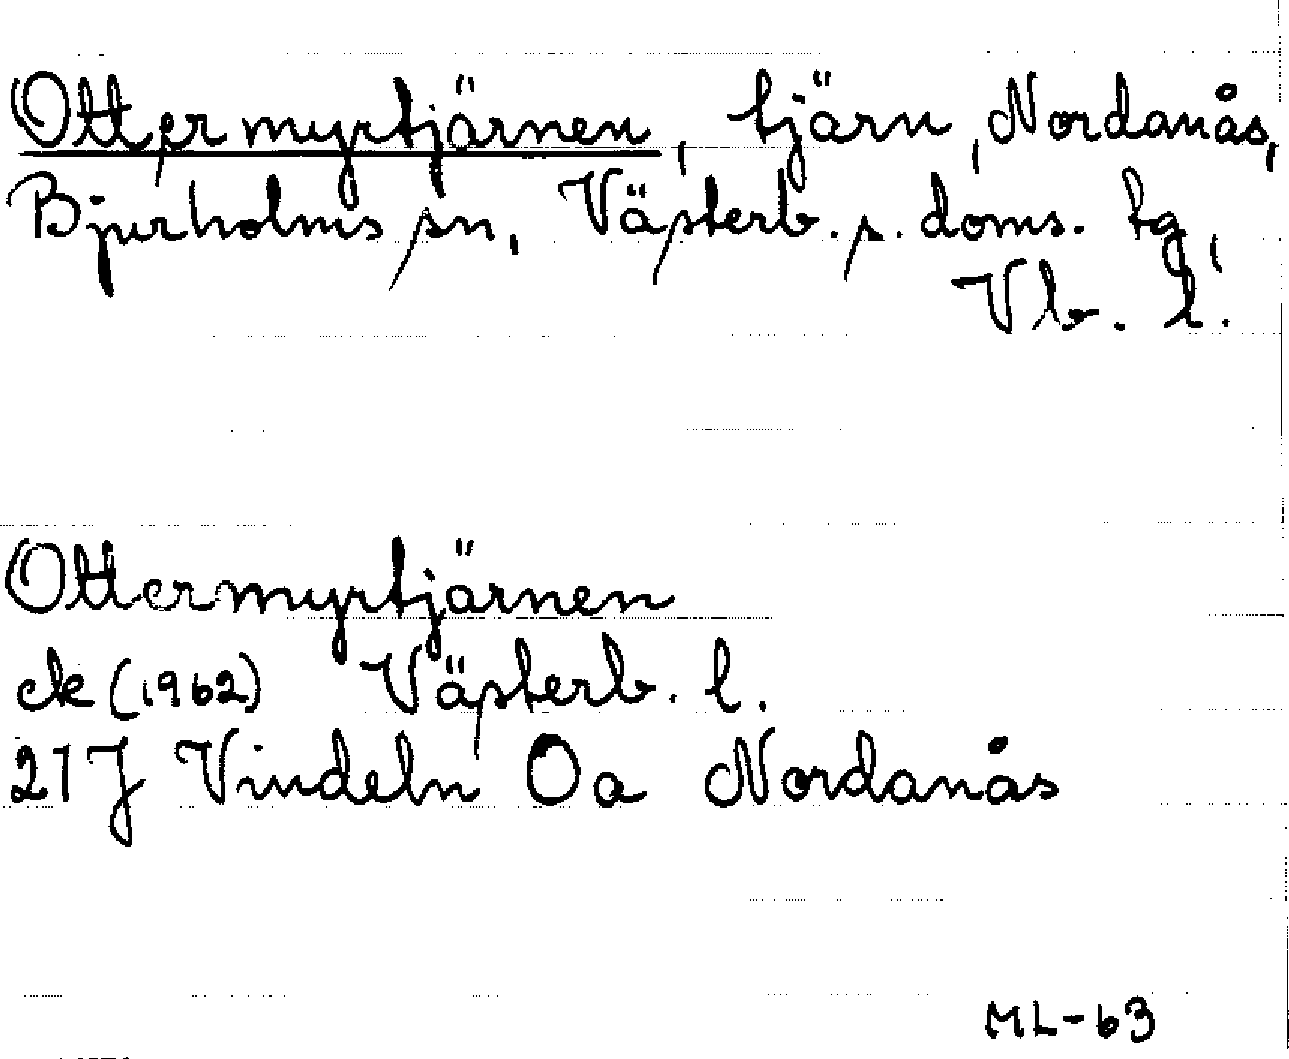 Ottermyrtjärnen, tjärn, Nordanås,
Bjurholms sn, Västerb. s. doms. tg,
Vb. l.
Ottermyrtjärnen
ek (1962) Västerb. l.
21 J Vindeln Oa Nordanås
ML-63